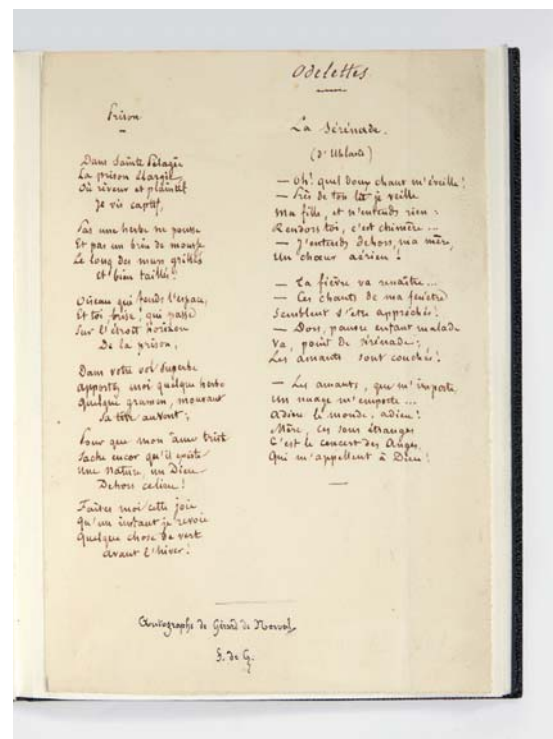 Odelettes
Prison
Dans Sainte Pélagie
La prison élargie,
Où rêveur et plaintif
Je vis captif,
Pas une herbe ne pousse
Et pas un brin de mousse
Le long des murs grillés
Et bien taillés!
Oiseau qui fends l'espace,
Et toi, brise! qui passe
Sur l'étroit horizon
De la prison,
Dans votre vol superbe
Apportez moi quelque herbe
Quelque gramen, mouvant
Sa tête au vent;
Pour que mon âme triste
Sache encor qu'il existe
Une nature, un Dieu
Dehors ce lieu!
Faites moi cette joie
Qu'un instant je revoie
Quelque chose de vert
Avant l'hiver!
La Sérénade.
(d'Uhland)
— Oh! quel doux chant m'éveille!
— Près de ton lit je veille
Ma fille, et n'entends rien:
Rendors toi, c'est chimère...
— J'entends dehors, ma mère,
Un chœur aérien!
— Ta fièvre va renaître...
— Ces chants de ma fenêtre
Semblent s'être approchés!
— Dors, pauvre enfant malade
Va, point de sérénade;
Les amants sont couchés!
— Les amants, que m'importe,
Un nuage m'emporte...
Adieu le monde, adieu!
Mère, ces sons étranges
C'est le concert des Anges,
Qui m'appellent à Dieu!
Autographe de Gérard de Nerval